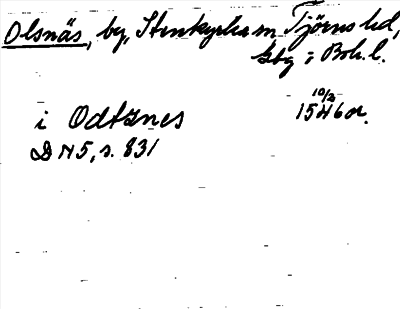 Olsnäs, by, Stenkyrka sn, Tjörns hd,
Gbg o Boh. l.
10/3
i Odtznes 1546 or.
DN 5, s. 831